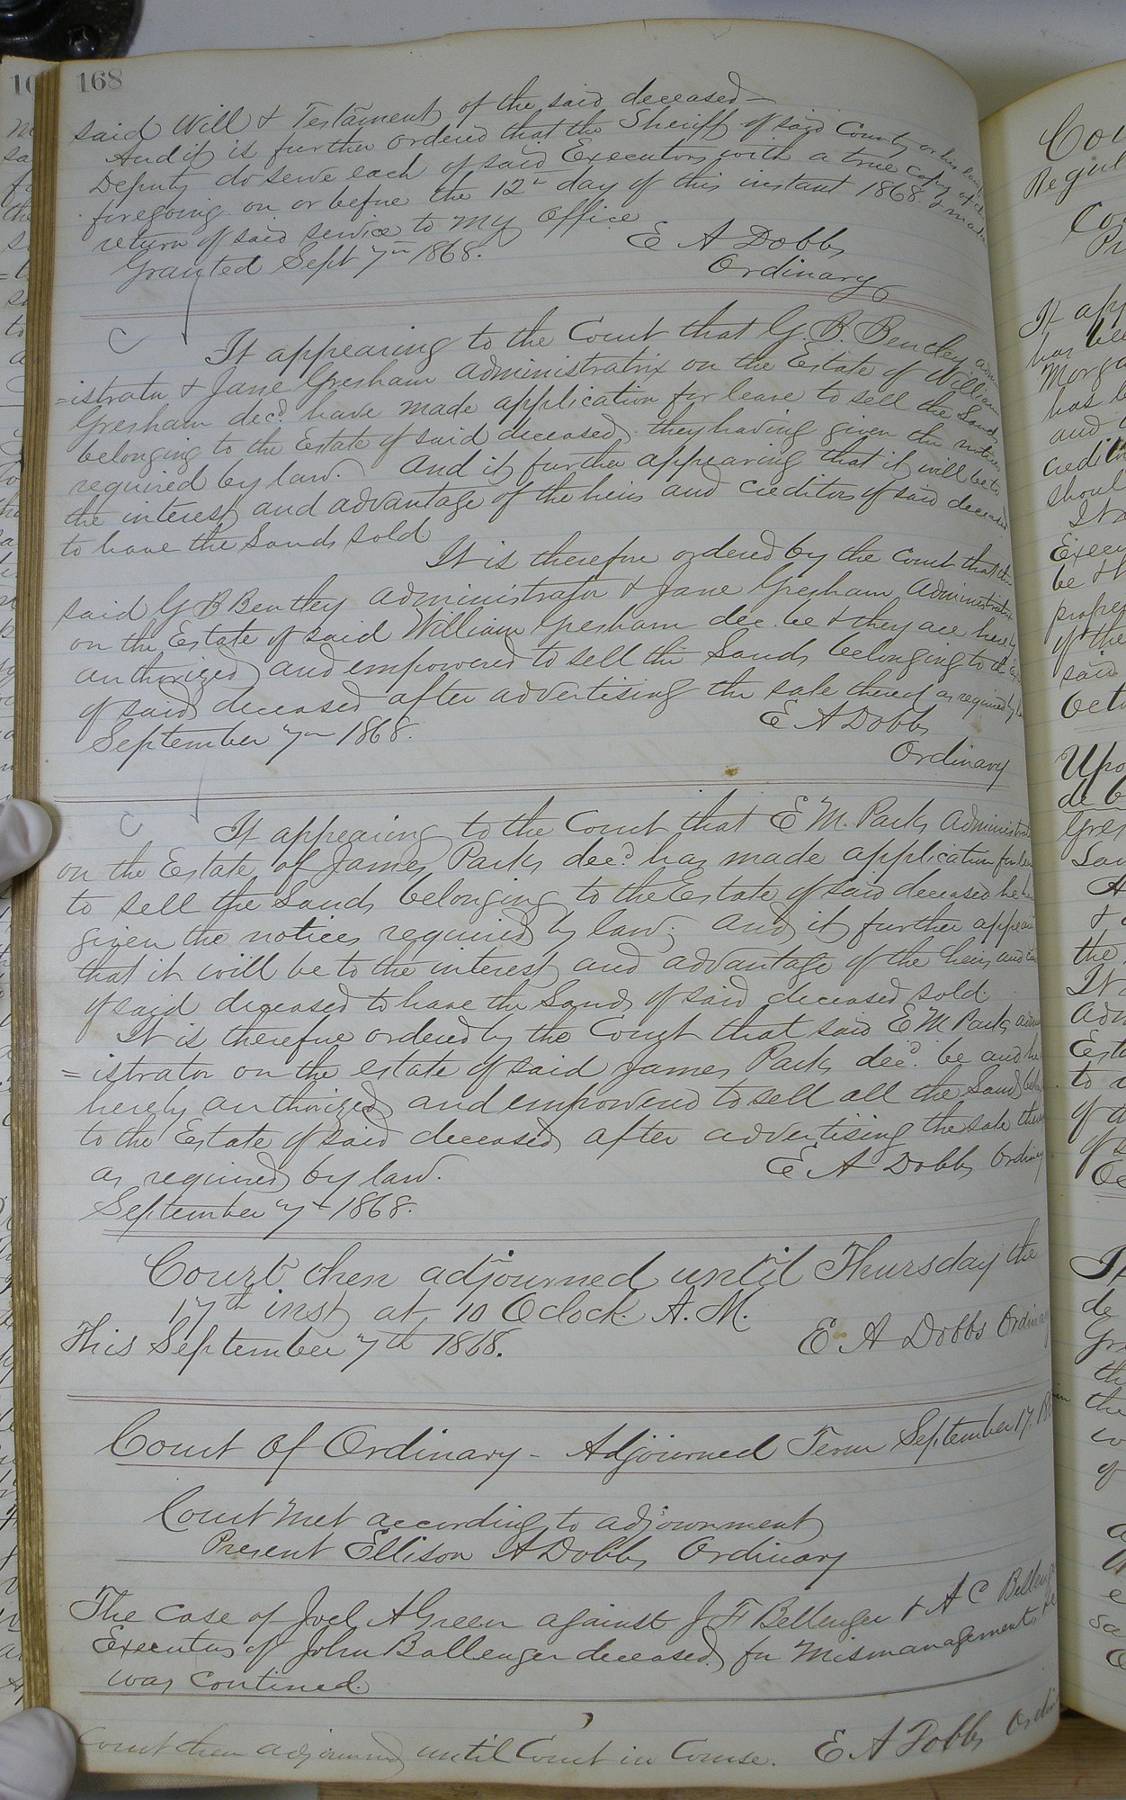 168
said Will & Testament of the said deceased—
And it is further ordered that the Sheriff of said County or his
Deputy do serve each of said Executors with a true copy of the
foregoing on or before the 12th day of this instant 1868. & make
return of said service to my Office
Granted Sept 7th 1868.
E A Dobbs
Ordinary
C
It appearing to the Court that G. B. Bentley admin
=istrator & Jane Gresham administratrix on the Estate of William
Gresham decd. have made application for leave to sell the Lands
belonging to the Estate of said deceased, they having given the notices
required by law. And it further appearing that it will be to
the interest and advantage of the heirs and creditors of said deceased
to have the Lands sold
It is therefore ordered by the Court that the
said G B Bentley administrator & Jane Gresham Administratrix
on the Estate of said William Gresham dec. be & they are hereby
authorized and empowered to sell the Lands belonging to the
of said deceased after advertising the sale thereof as required by law
September 7th 1868.
E A Dobbs
Ordinary
C
It appearing to the Court that E M. Parks Administrator
on the Estate of James Parks decd. has made application for
to sell the Lands belonging to the Estate of said deceased he
given the notices required by law; and it further appear
that it will be to the interest and advantage of the heirs and
of said deceased to have the Lands of said deceased sold
It is therefore ordered by the Court that said E M Parks admin
=istrator on the estate of said James Parks decd. be and he
hereby authorized and empowered to sell all the Lands
to the Estate of said deceased, after advertising the sale
as required by law.
E A Dobbs Ordinary
September 7th 1868.
Court then adjourned until Thursday the
17th inst at 10 Oclock A. M.
This September 7th 1868.
E A Dobbs Ordinary
Court Of Ordinary - Adjourned Term September 17.
Court met according to adjournment
Present Ellison A Dobbs Ordinary
The case of Joel A Green against J F Bellenger & A C Bellenger
Executors of John Ballenger deceased, for Mismanagement
was contined.
Court then adjourned until Court in Course. E A Dobbs Ordin